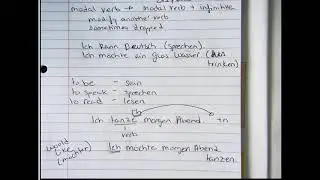 modal verb → modal verb + infinitive
modify another verb
sometimes dropped
Ich kann Deutsch (sprechen).
Ich möchte ein glas Wasser
trinken)
to be - sein
to speak - sprechen
to read - lesen
Ich tanze morgen Abend
verb
would
like
(möchte)
Ich möchte morgen Abend
tanzen.